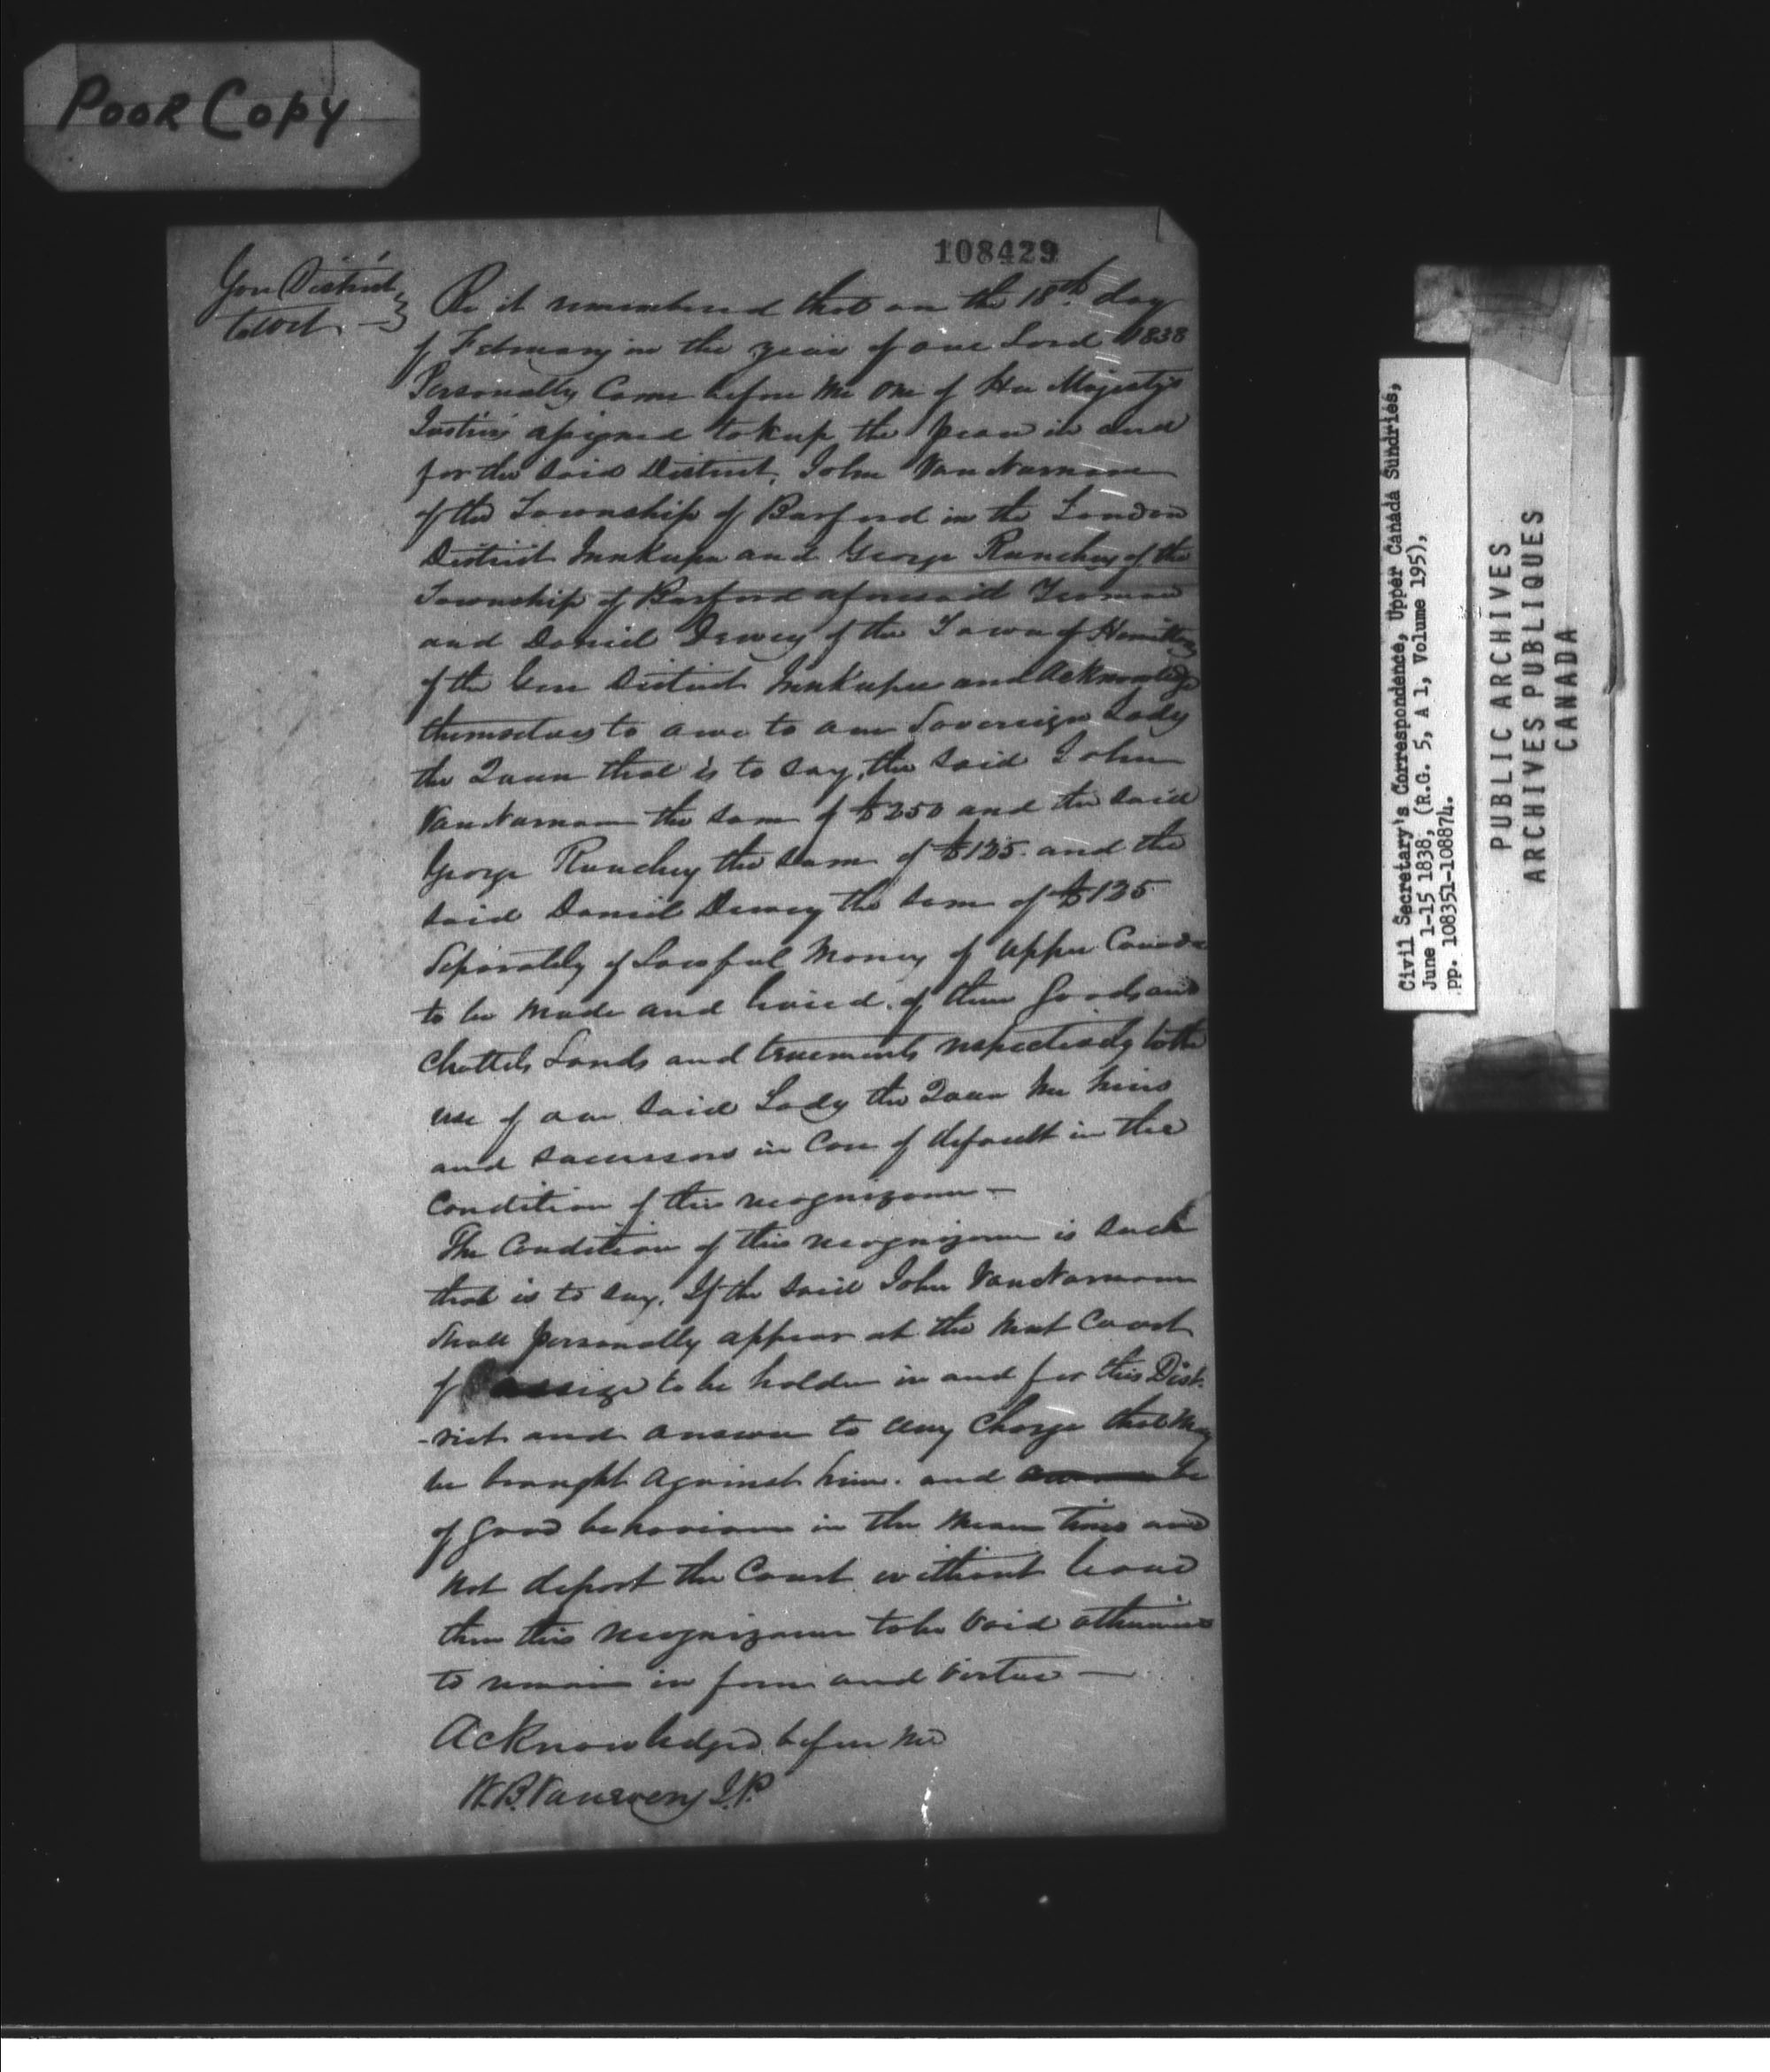 Poor Copy
108429
Gore District
to wit
Be it remembered that on the 18th day
of February in the year of our Lord 1838
Personally Came before me one of Her Majestys
Justices assigned to keep the peace in and
for the said District, John VanNorman
of the Township of Burford in the London
District Innkeeper and George Runchey of the
Township of Burford aforesaid Yeoman
and Daniel Dewey of the Town of Hamilton
of the Gore District Innkeeper and Acknowledge
themselves to owe to our Sovereign Lady
the Queen that is to say, the said John
VanNorman the sum of £250 and the said
George Runchey the sum of £125. and the
said Daniel Dewey the sum of £125
Seperately of Lawful Money of Upper Canada
to be made and levied of their Goods and
Chattels Lands and tenements respectively to the
use of our said Lady the Queen her heirs
and successors in Case of default in the
Condition of this recognizance —
The Condition of this recognizance is such
that is to say, If the said John VanNorman
shall personally appear at the next Court
of assize to be holden in and for this Dist-
-rict and answer to any Charge that may
be brought against him. and be
of good behaviour in the mean time and
not depart the Court without leave
then this recognizance to be Void otherwise
to remain in force and Virtue —
Acknowledged before me
W.B. Vanevery J.P.
Civil Secretary's Correspondence, Upper Canada Sundries,
June 1-15 1838, (R.G. 5, A 1, Volume 195),
pp. 108351-108874.
PUBLIC ARCHIVES
ARCHIVES PUBLIQUES
CANADA